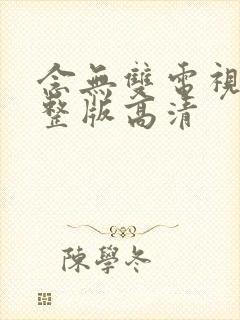 念無雙電視
整版高清
陳學冬